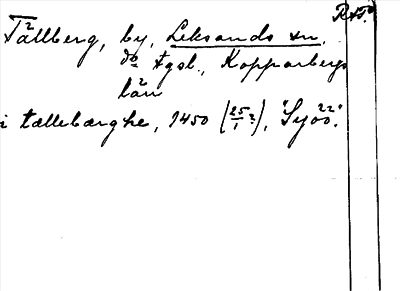 Tällberg, by, Leksands sn.
do tgsl., Kopparbergs
län
i tællebærghe, 1450 (25/1 ?),